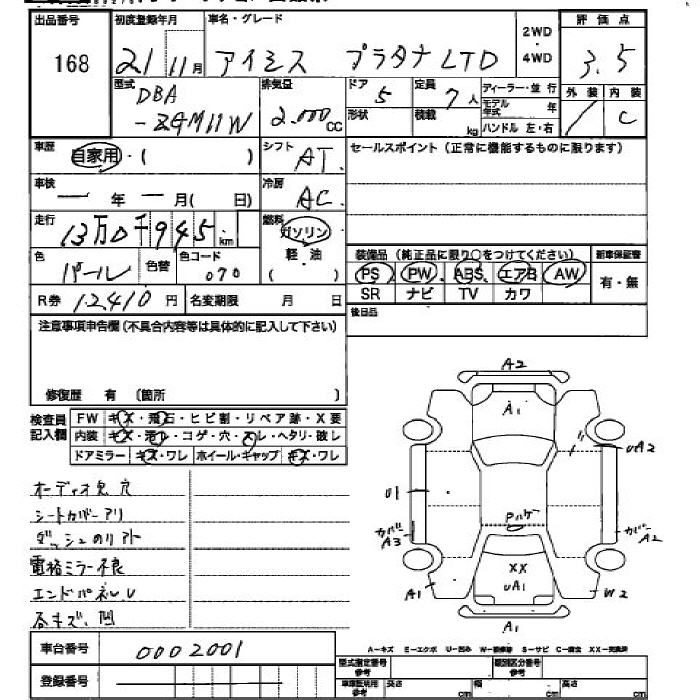 出品番号 初度登録年月 車名・グレード 2WD ・ 4WD 評価点
168 21 11月 アイシス プラタナ LTD 3.5
型式 DBA -ZGM11W 排気量 2.000cc ドア 5 定員 7人 ディーラー・並行 外装 内装
形状 積載 kg モデル年式 年 ハンドル 左・右 / C
車歴 自家用・( ) シフト AT. セールスポイント(正常に機能するものに限ります)
車検 ― 年 ― 月( 日) 冷房 AC
走行 13万0千945km 燃料 ガソリン
軽・油
( )
色 パール 色替 色コード 070 装備品(純正品に限り○をつけてください) 新車保証書
PS PW ABS エアB AW 有・無
SR ナビ TV カワ
R券 12410円 名変期限 月 日 後日品
注意事項申告欄(不具合内容等は具体的に記入して下さい)
修復歴 有 〔箇所 〕
検査員記入欄 FW キズ・飛石・ヒビ割・リペア跡・X要
内装 キズ・汚レ・コゲ・穴・スレ・ヘタリ・破レ
ドアミラー キズ・ワレ ホイール・キャップ キズ・ワレ
オーディオ欠穴
シートカバーアリ
ダッシュのリアト
電格ミラー不良
エンドパネルU
各キズ、凹
A2
A1
UA2
U1
Pハゲ
カバー A3
カバー A2
XX
UA1
A1
W2
A1
車台番号 0002001
登録番号
A-キズ E-エクボ U-凹み W-補修跡 S-サビ C-腐食 XX-交換済
型式指定番号 参考 類別区分番号 参考
車庫証明用 参考 長さ cm 幅 cm 高さ cm